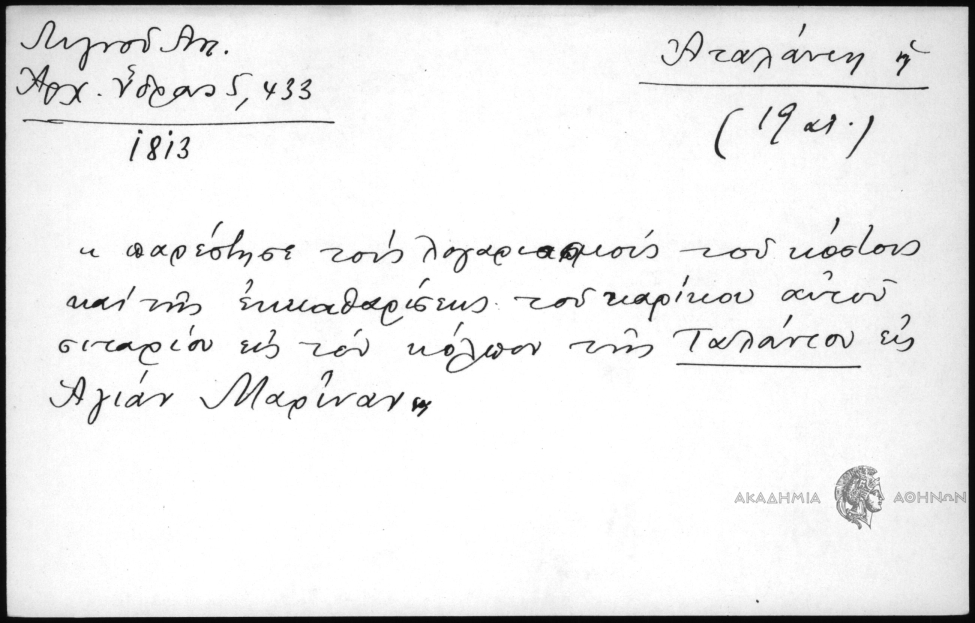 Λιγνοῦ Ἀπ.
Ἀρχ. Ὕδρας 5, 433
1813
Ἀταλάντη ἡ
(19 αἰ.)
« παρέστησε τούς λογαριασμούς τοῦ κόστους
καί τῆς ἐκκαθαρίσεως τοῦ καρίκου αὐτοῦ
σιταρίου εἰς τόν κόλπον τῆς Ταλάντου εἰς
Ἁγιάν Μαρίναν »
ΑΚΑΔΗΜΙΑ ΑΘΗΝΩΝ